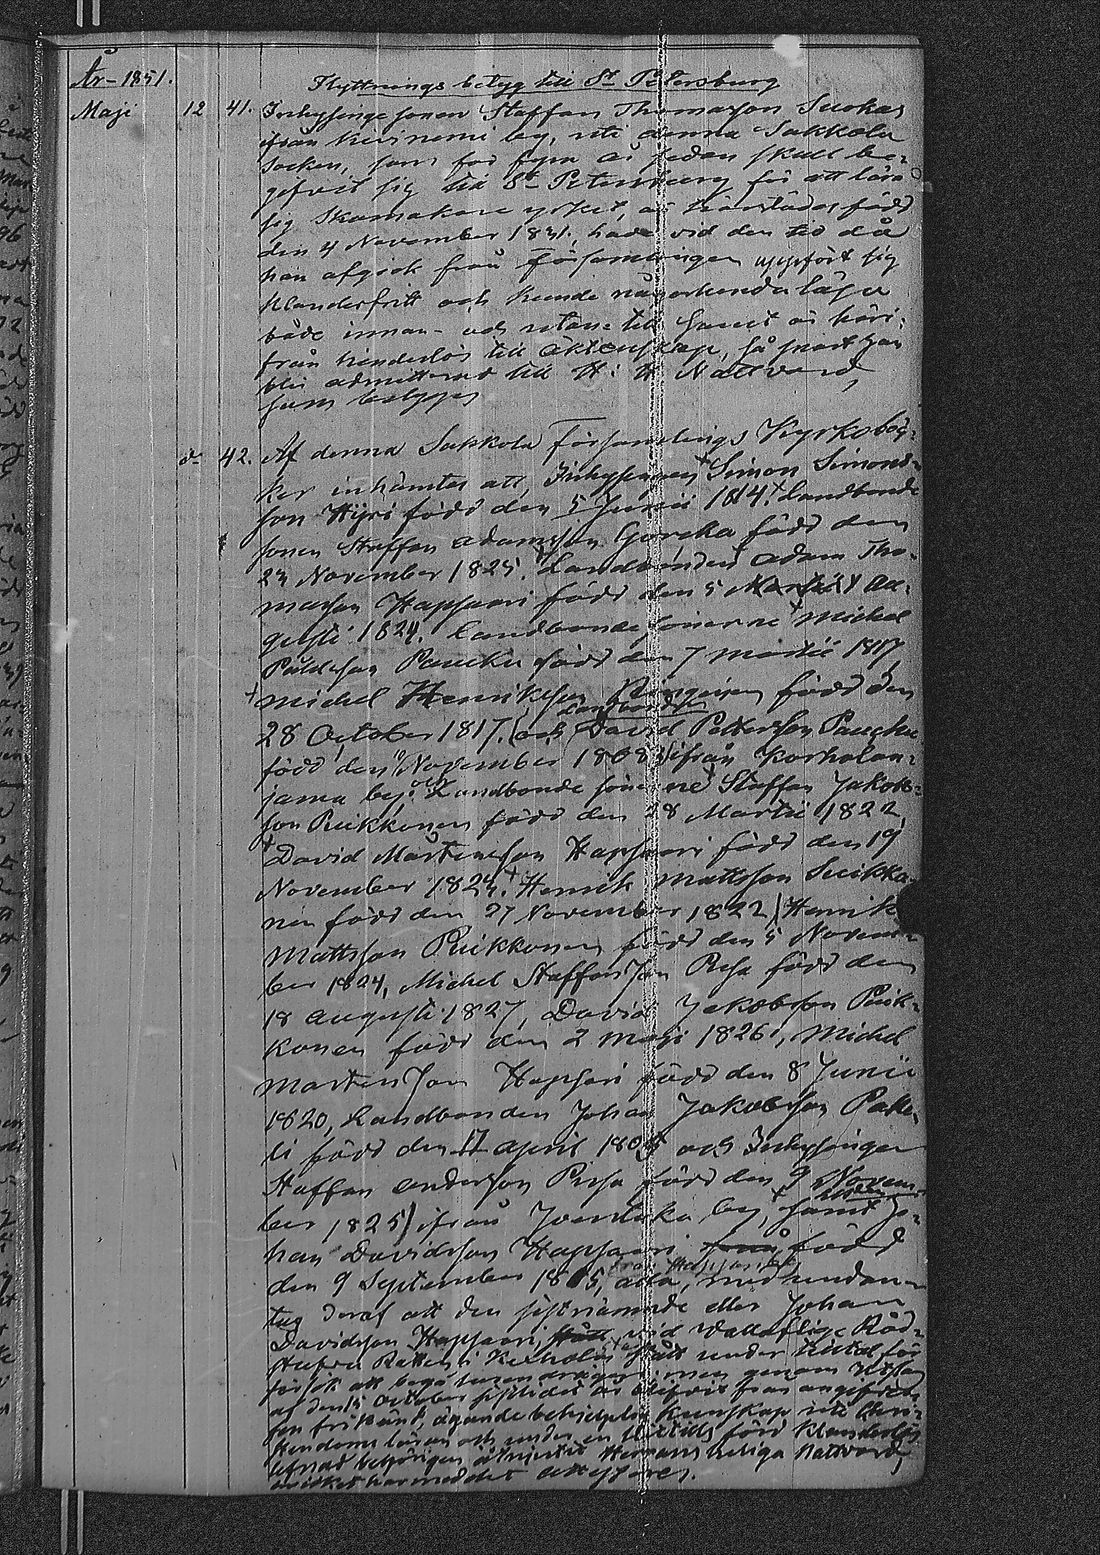 År 1851.
Flyttnings betyg till St Petersburg
Maji 12 41. Inhysinge sonen Staffan Thomasson Suokas
ifrån Keisnemi by, uti denna Sakkola
Socken, som för fyra år sedan skall be-
gifvit sig till St Petersburg för att lära
sig Skomakare yrket, är härstädes född
den 4 November 1831, hade vid den tid då
han afgick från Församlingen uppfört sig
Klanderfritt och kunde någorlunda läsa
både innan- och utantill samt är häri-
från hinderlös till äktenskap, så snart han
blir admitterad till H: H: Nattvard,
som betygas
d- 42. Af denna Sakkola Församlings Kyrkobö-
ker inhämtas att, Inhysingen Simon Simons-
son Hyri född den 5 Junii 1814. Landbonde
sonen Staffan Adamsson född den
23 November 1825. Landbonden Adam Tho-
masson Hapsaari född den 5 Au-
gusti 1824. Landbondesönerne Michel
Påhlsson Paucku född den 7 Martii 1817,
Michel Henriksson född den
28 October 1817. och Landbonden David Pettersson Paucku
född den November 1808 ifrån Korholan-
jama by. Landbonde sönerne Staffan Jakobs-
son Riikkonen född den 28 Martii 1822,
David Mårtensson Hapsaari född den 19
November 1823. Henrik Mattsson Suikka-
nen född den 27 November 1822, Henrik
Mattsson Riikkonen född den 5 Novem-
ber 1824, Michel Staffansson född den
18 Augusti 1827, David Jakobsson Riik-
konen född den 2 Maji 1826, Michel
Martensson Hapsari född den 8 Junii
1820, Landbonden Johan Jakobsson
född den 17 April 180 och Inhysingen
Staffan Andersson född den 9 Novem-
ber 1825 ifrån by, samt Jo-
han Davidsson Hapsaari, född
den 9 September 1815, alla, med undan-
tag deraf att den sistnämnde eller Johan
Davidsson Hapsaari, vid Wällaflige Råd-
stufvu Rätten i Kexholm stått under tilltal för
försök att begå men genom Utslag
af den 15 October sistlidet år blifvit från angifvelse
frikänd, ägande behjelplig Kunskap uti Chri-
stendoms läran och under en förd klanderlös
lefnad behörigen åtnjutit Herrans heliga Nattvard,
hvilket härmedelst attesteras.